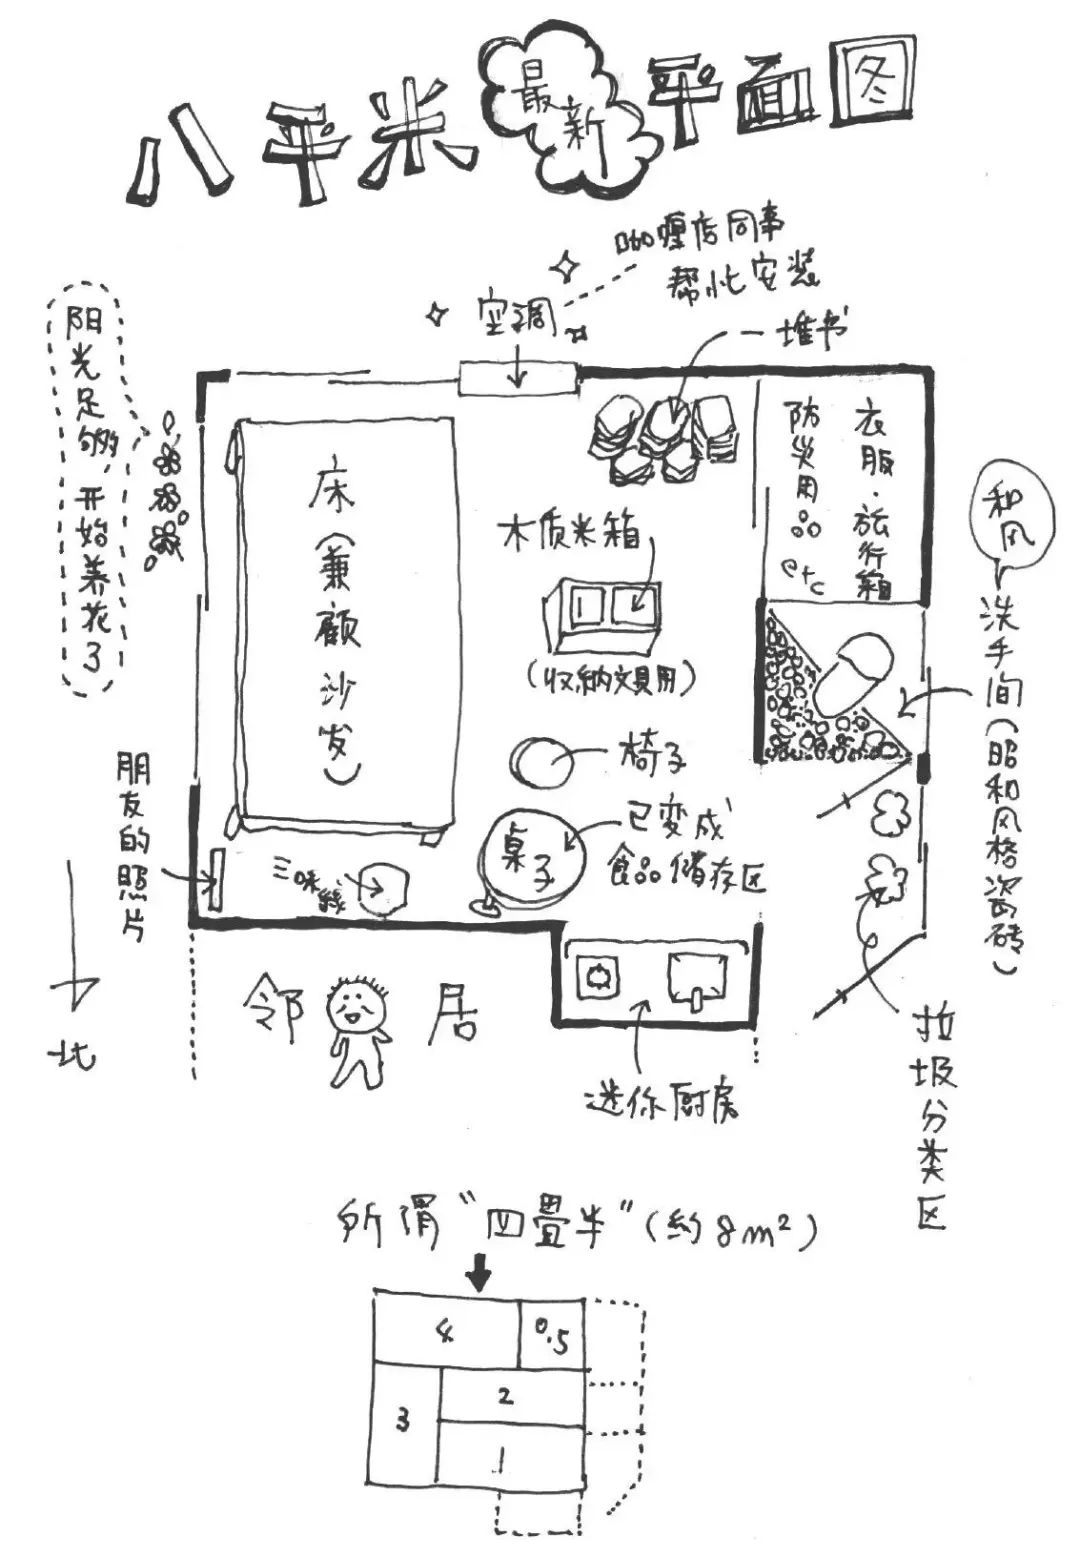 八平米最新平面图
咖喱店同事
帮忙安装
空调
一堆书
阳光足够,开始养花了
床(兼顾沙发)
防灾用品 etc
衣服·旅行箱
木质米箱
(收纳文具用)
和风
洗手间(昭和风格瓷砖)
椅子
桌子
已变成
食品储存区
朋友的照片
三味线
北
邻居
迷你厨房
垃圾分类区
所谓“四畳半”(约8m²)
4
0.5
3
2
1